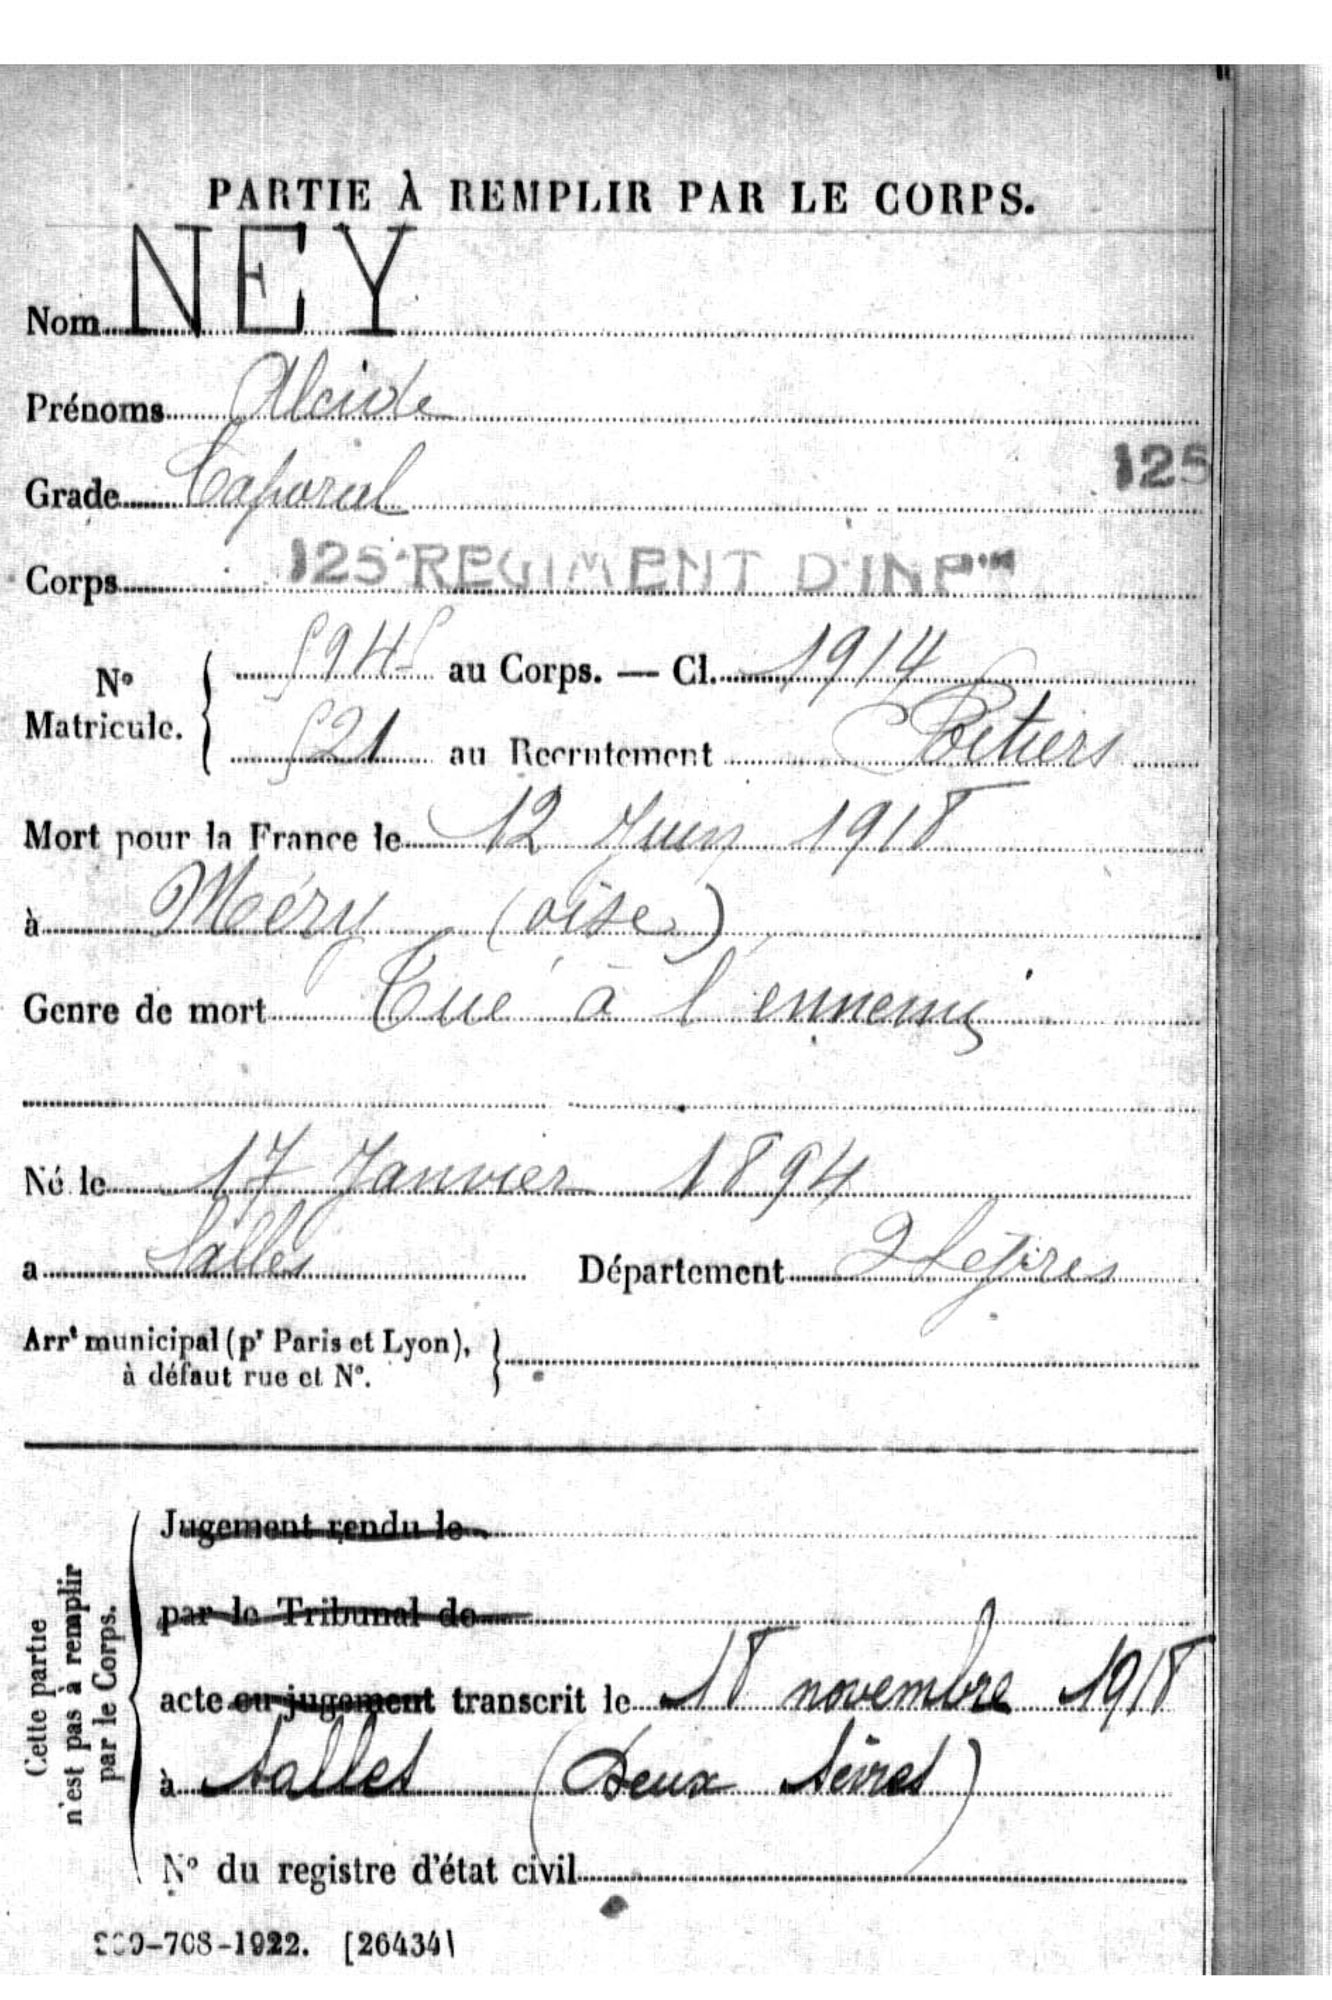 PARTIE À REMPLIR PAR LE CORPS.
Nom NEY
Prénoms Alcide
Grade Caporal
125
Corps 125e REGIMENT D'INFie
N° Matricule.
au Corps. — Cl. 1914
au Recrutement Poitiers
Mort pour la France le 12 Juin 1918
à Méry (oise)
Genre de mort Tué à l'ennemi
Né le 17 Janvier 1894
a Salles Département 2 Sèvres
Arrt municipal (pr Paris et Lyon),
à défaut rue et N°.
Cette partie
n'est pas à remplir
par le Corps.
Jugement rendu le
par le Tribunal de
acte ou jugement transcrit le 18 novembre 1918
à Salles (Deux Sèvres)
N° du registre d'état civil
-708-1922. [26434]